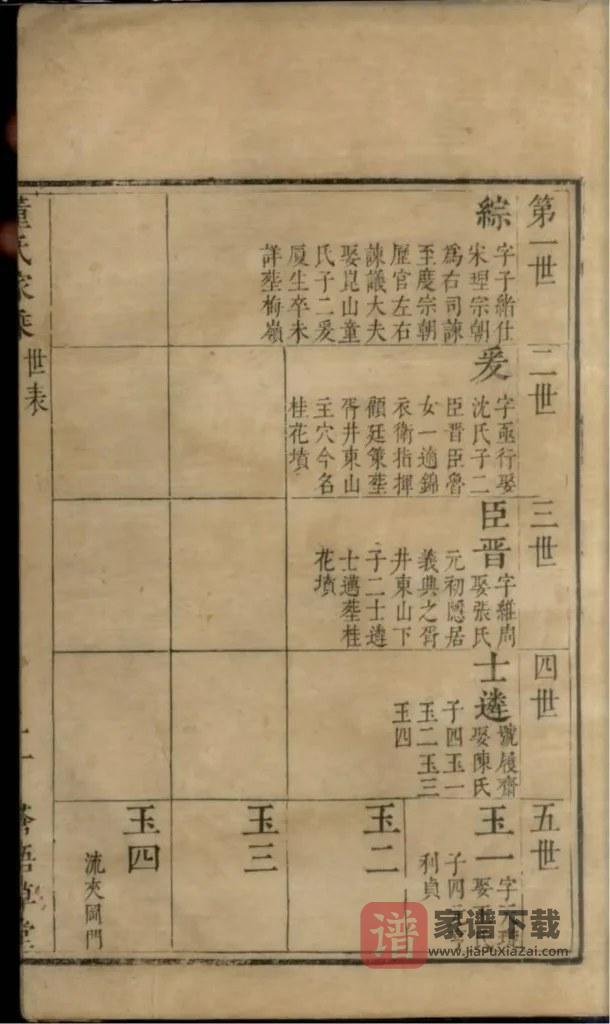 第一世
綜
字子緒仕
宋理宗朝
為右司諫
至度宗朝
歷官左右
諫議大夫
娶崑山童
氏子二爰
厦生卒未
詳塟梅嶺
二世
爰
字亟行娶
沈氏子二
臣晋臣魯
女一適錦
衣衛指揮
顧廷策塟
胥井東山
主穴今名
桂花墳
三世
臣晋
字維周
娶張氏
元初隠居
義典之胥
井東山下
子二士遴
士邁塟桂
花墳
四世
士遴
號履齋
娶陳氏
子四玉一
玉二玉三
玉四
五世
玉一
字
娶
子四
利貞
玉二
玉三
玉四
流夾岡門
董氏家乗
世表
草堂
谱 家谱下载
www.jiaPuXiaZai.com